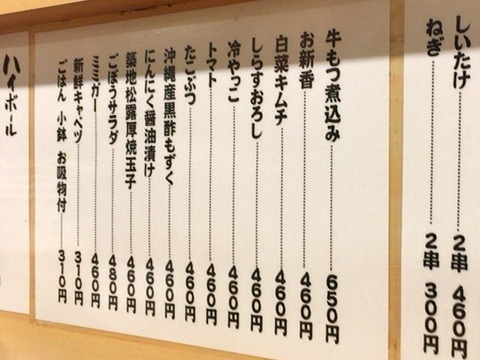 しいたけ 2串 460円
ねぎ 2串 300円
牛もつ煮込み 650円
お新香 460円
白菜キムチ 460円
しらすおろし 460円
冷やっこ 460円
トマト 460円
たこぶつ 460円
沖縄産黒酢もずく 460円
にんにく醤油漬け 460円
築地松露厚焼玉子 460円
ごぼうサラダ 480円
ミミガー 460円
新鮮キャベツ 310円
ごはん 小鉢 お吸物付 310円
ハイボール